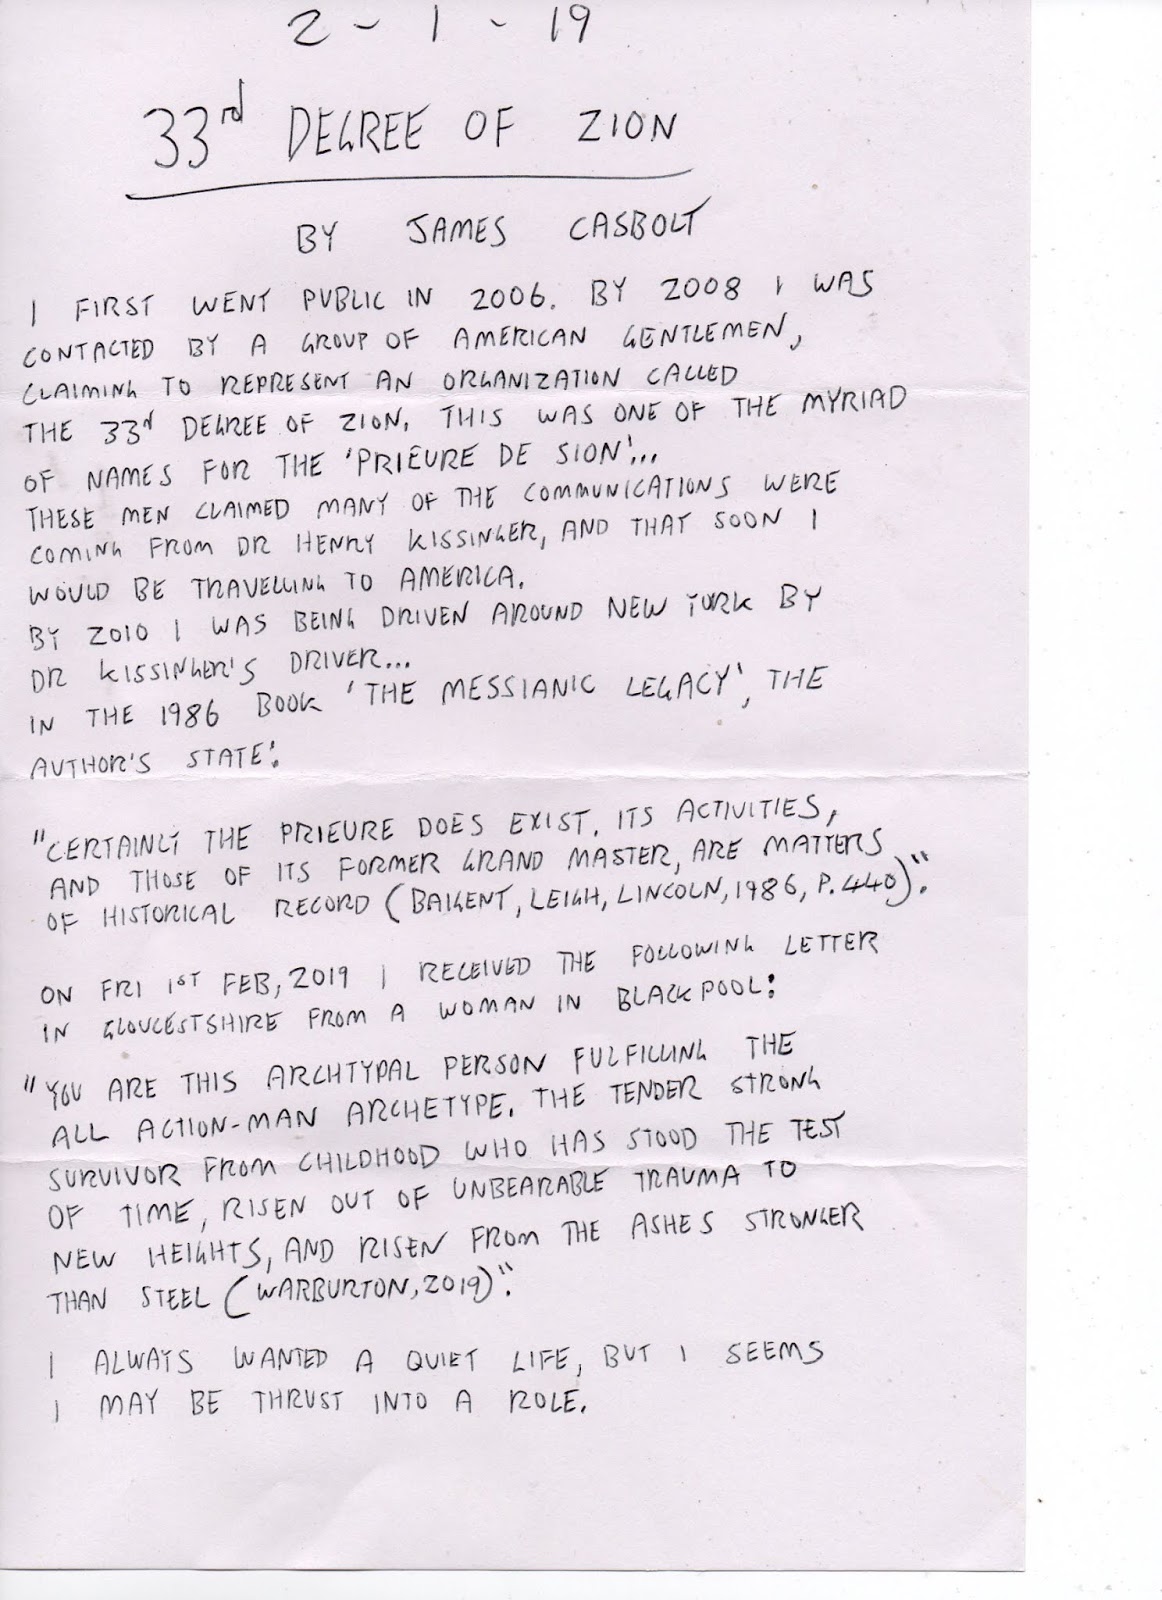 2 - 1 - 19
33rd DEGREE OF ZION
BY JAMES CASBOLT
I FIRST WENT PUBLIC IN 2006. BY 2008 I WAS
CONTACTED BY A GROUP OF AMERICAN GENTLEMEN,
CLAIMING TO REPRESENT AN ORGANIZATION CALLED
THE 33rd DEGREE OF ZION. THIS WAS ONE OF THE MYRIAD
OF NAMES FOR THE 'PRIEURE DE SION'...
THESE MEN CLAIMED MANY OF THE COMMUNICATIONS WERE
COMING FROM DR HENRY KISSINGER, AND THAT SOON I
WOULD BE TRAVELLING TO AMERICA.
BY 2010 I WAS BEING DRIVEN AROUND NEW YORK BY
DR KISSINGER'S DRIVER...
IN THE 1986 BOOK 'THE MESSIANIC LEGACY', THE
AUTHOR'S STATE:
"CERTAINLY THE PRIEURE DOES EXIST. ITS ACTIVITIES,
AND THOSE OF ITS FORMER GRAND MASTER, ARE MATTERS
OF HISTORICAL RECORD (BAIGENT, LEIGH, LINCOLN, 1986, P.440)".
ON FRI 1ST FEB, 2019 I RECEIVED THE FOLLOWING LETTER
IN GLOUCESTSHIRE FROM A WOMAN IN BLACKPOOL:
"YOU ARE THIS ARCHTYPAL PERSON FULFILLING THE
ALL ACTION-MAN ARCHETYPE. THE TENDER STRONG
SURVIVOR FROM CHILDHOOD WHO HAS STOOD THE TEST
OF TIME, RISEN OUT OF UNBEARABLE TRAUMA TO
NEW HEIGHTS, AND RISEN FROM THE ASHES STRONGER
THAN STEEL (WARBURTON, 2019)".
I ALWAYS WANTED A QUIET LIFE, BUT I SEEMS
I MAY BE THRUST INTO A ROLE.